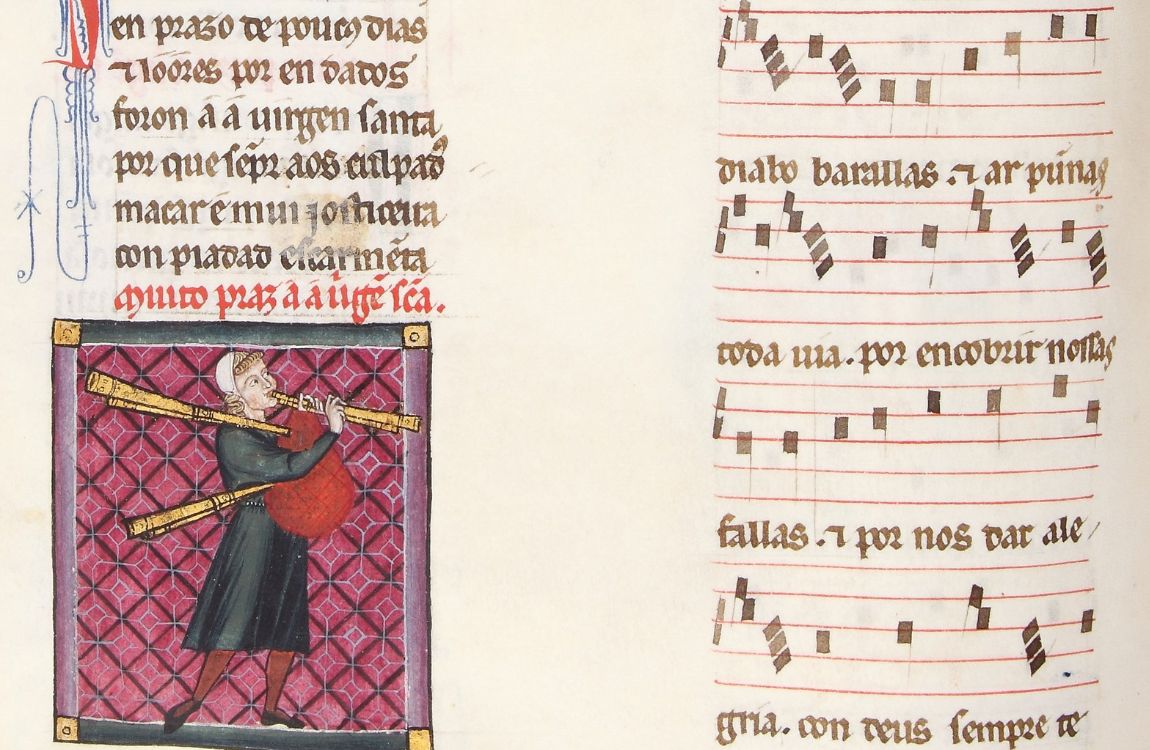 en prazo de poucꝰ dias
⁊ loores por en dados
foron á á uirgen santa
por que sẽpr aos culpadꝰ
macar é mui iosticeira
con piadad escarmẽta
Muito praz á á uirgẽ scã.
diabo barallas .⁊ ar pũnas
toda uia. por encobrir nossas
fallas .⁊ por nos dar ale/
gria. con deus sempre te